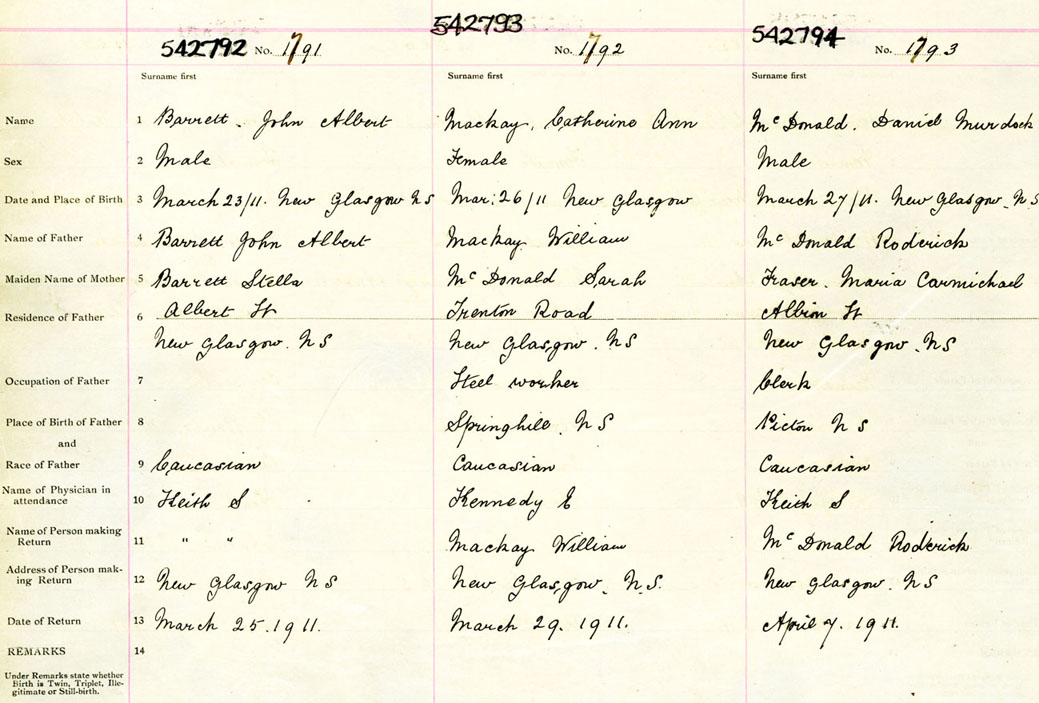 542792 No. 1791 542793 No. 1792 542794 No. 1793
Surname first Surname first Surname first
Name 1 Barrett. John Albert Mackay, Catherine Ann Mc Donald. Daniel Murdock
Sex 2 Male Female Male
Date and Place of Birth 3 March 23/11. New Glasgow N S Mar: 26/11 New Glasgow March 27/11. New Glasgow. N S
Name of Father 4 Barrett John Albert Mackay William Mc Donald Roderick
Maiden Name of Mother 5 Barrett Stella Mc Donald Sarah Fraser. Maria Carmichael
Residence of Father 6 Albert St Trenton Road Albion St
New Glasgow. N S New Glasgow. N S New Glasgow. N S
Occupation of Father 7 Steel worker Clerk
Place of Birth of Father 8 Springhill. N S Pictou N S
and
Race of Father 9 Caucasian Caucasian Caucasian
Name of Physician in
attendance 10 Keith S Kennedy E Keith S
Name of Person making
Return 11 " " Mackay William Mc Donald Roderick
Address of Person mak-
ing Return 12 New Glasgow N S New Glasgow. N.S. New Glasgow. N S
Date of Return 13 March 25. 1911. March 29. 1911. April 7. 1911.
REMARKS 14
Under Remarks state whether
Birth is Twin, Triplet, Ille-
gitimate or Still-birth.